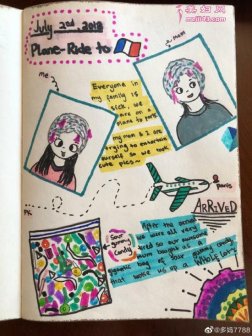 美妇网
meifu93.com
July 2nd, 2018
Plane-Ride to
me
mom
Everyone in
my family is
sick. We
are on a
plane to paris.
my mom & I are
trying to entertain
ourself so we took
cute pics~
paris
ARRIVED
PK
Sour
gummy
Candy
After the
we were all very
tired so our awesome
mom bought us a
gigantic bag of sour gummy candy
that woke us up a WHOLE lot!
@多妈7788